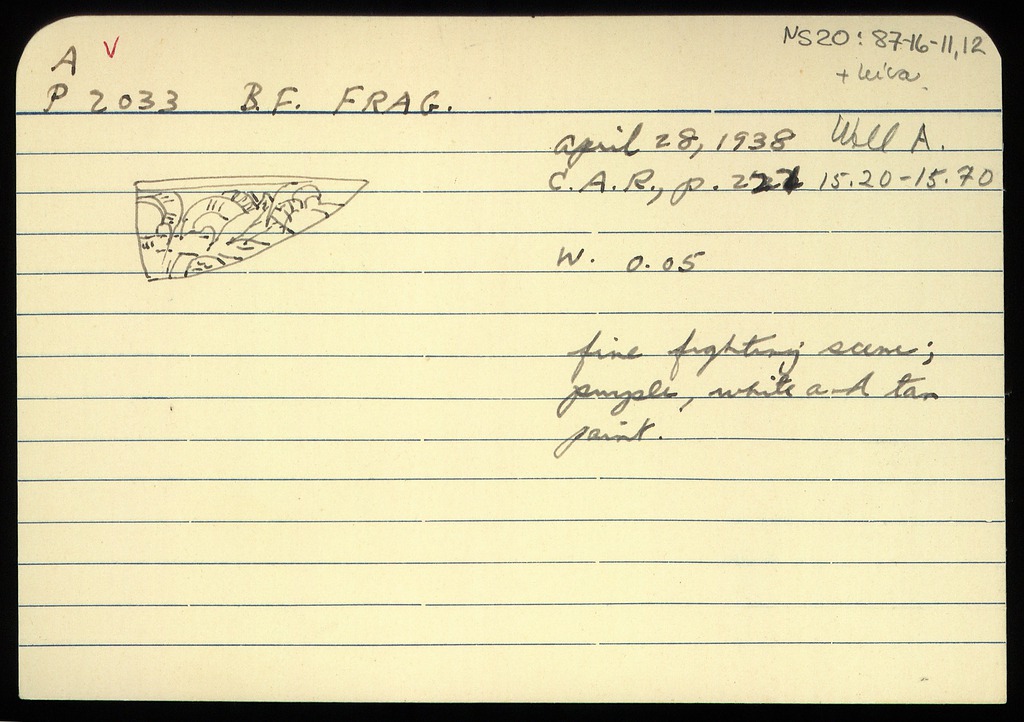 NS20: 87-16-11,12
+ leica
A V
P 2033 B.F. FRAG.
april 28, 1938 Well A.
C.A.R., p. 15.20-15.70
W. 0.05
fine fighting scene;
purple, white and tan
paint.